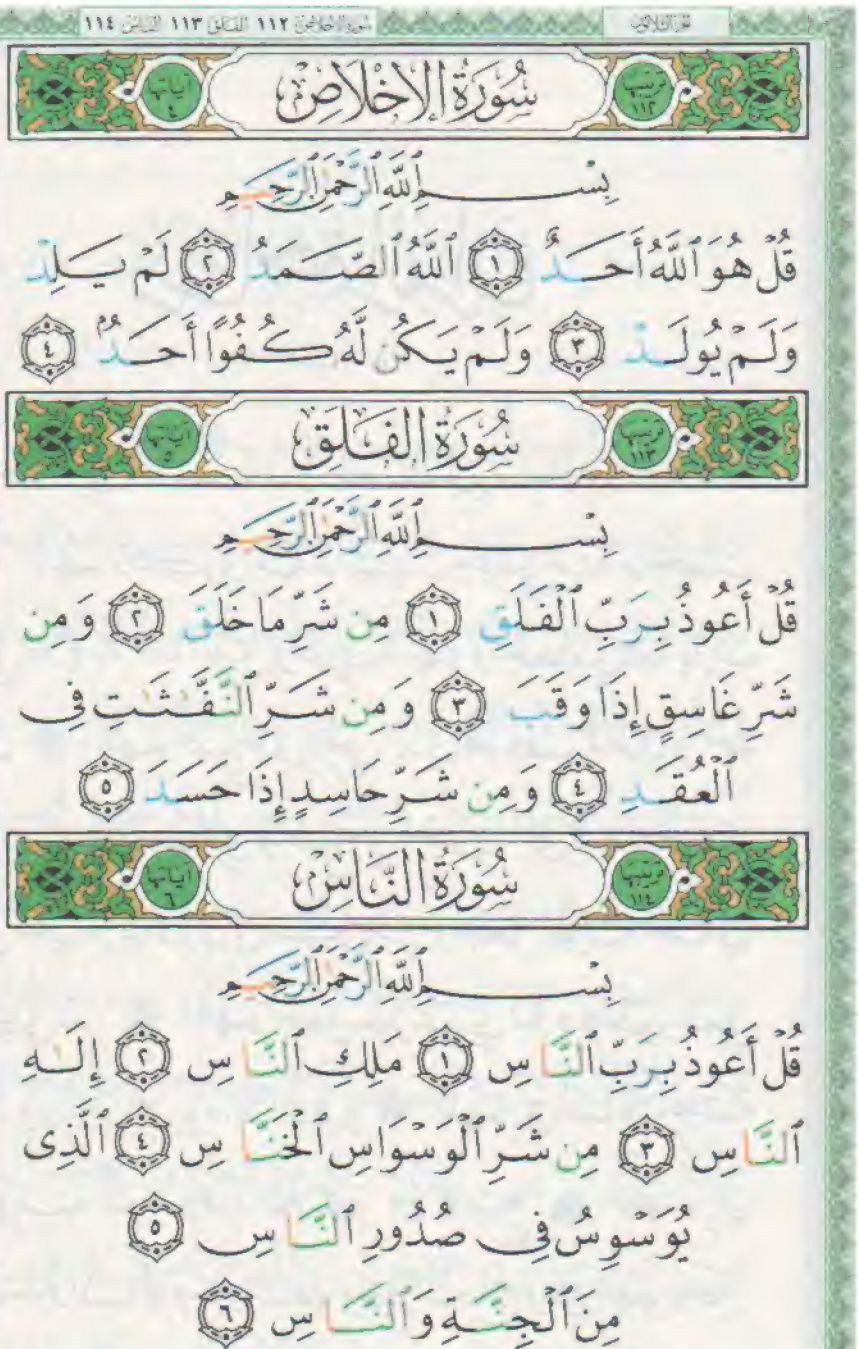 الجزء الثلاثون
سورة الإخلاص ١١٢ الفلق ١١٣ الناس ١١٤
ترتيبها ١١٢
سُورَةُ الإِخْلَاصِ
آياتها ٤
بِسْمِ ٱللَّهِ ٱلرَّحْمَٰنِ ٱلرَّحِيمِ
قُلْ هُوَ ٱللَّهُ أَحَدٌ ١ ٱللَّهُ ٱلصَّمَدُ ٢ لَمْ يَلِدْ
وَلَمْ يُولَدْ ٣ وَلَمْ يَكُن لَّهُۥ كُفُوًا أَحَدٌۢ ٤
ترتيبها ١١٣
سُورَةُ الفَلَقِ
آياتها ٥
بِسْمِ ٱللَّهِ ٱلرَّحْمَٰنِ ٱلرَّحِيمِ
قُلْ أَعُوذُ بِرَبِّ ٱلْفَلَقِ ١ مِن شَرِّ مَا خَلَقَ ٢ وَمِن
شَرِّ غَاسِقٍ إِذَا وَقَبَ ٣ وَمِن شَرِّ ٱلنَّفَّٰثَٰتِ فِى
ٱلْعُقَدِ ٤ وَمِن شَرِّ حَاسِدٍ إِذَا حَسَدَ ٥
ترتيبها ١١٤
سُورَةُ النَّاسِ
آياتها ٦
بِسْمِ ٱللَّهِ ٱلرَّحْمَٰنِ ٱلرَّحِيمِ
قُلْ أَعُوذُ بِرَبِّ ٱلنَّاسِ ١ مَلِكِ ٱلنَّاسِ ٢ إِلَٰهِ
ٱلنَّاسِ ٣ مِن شَرِّ ٱلْوَسْوَاسِ ٱلْخَنَّاسِ ٤ ٱلَّذِى
يُوَسْوِسُ فِى صُدُورِ ٱلنَّاسِ ٥
مِنَ ٱلْجِنَّةِ وَٱلنَّاسِ ٦